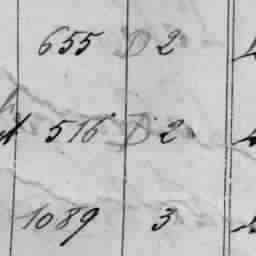 655 D 2
516 D 2
1089 3